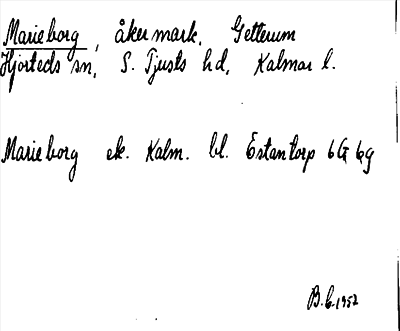 Marieborg, åkermark, Getterum
Hjorteds sn, S. Tjusts hd, Kalmar l.
Marieborg ek. Kalm. bl. Estantorp 6G 6g
B.b. 1952